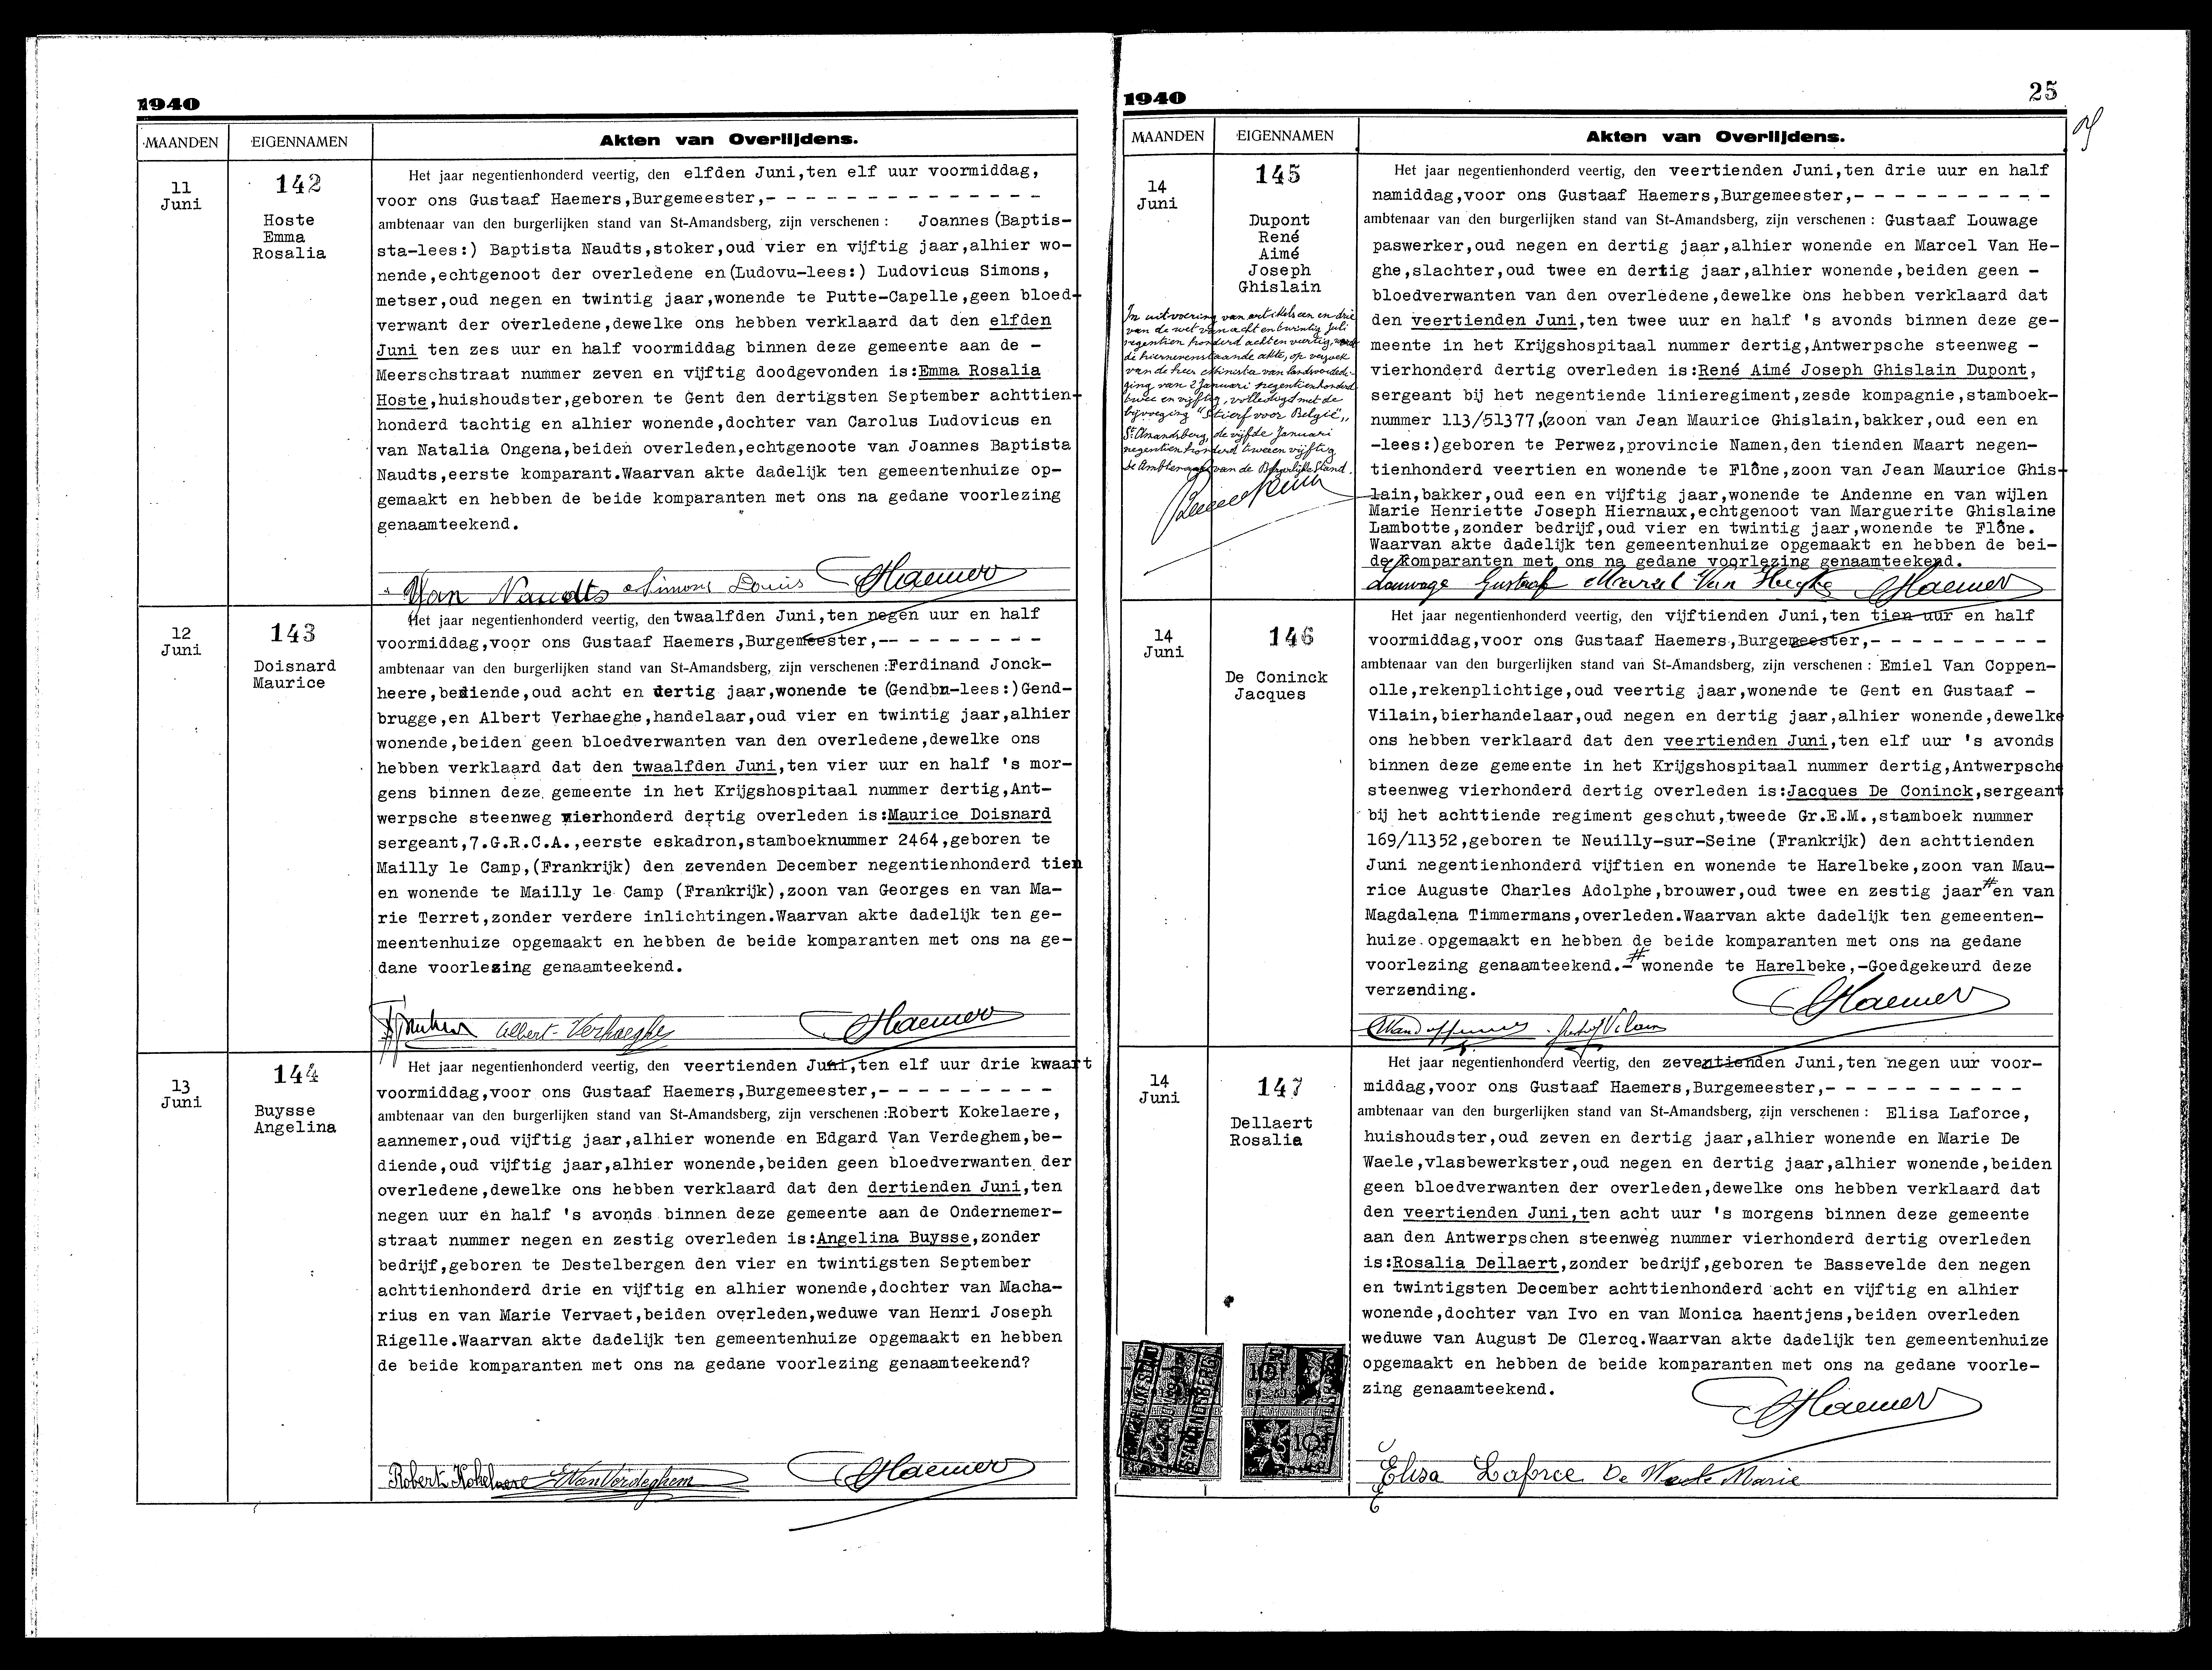 1940
MAANDEN
EIGENNAMEN
Akten van Overlijdens.
11
Juni
142
Hoste
Emma
Rosalia
Het jaar negentienhonderd veertig, den elfden Juni,ten elf uur voormiddag,
voor ons Gustaaf Haemers,Burgemeester,- - - - - - - - - - - - - -
ambtenaar van den burgerlijken stand van St-Amandsberg, zijn verschenen : Joannes (Baptis-
sta-lees:) Baptista Naudts,stoker,oud vier en vijftig jaar,alhier wo-
nende,echtgenoot der overledene en(Ludovu-lees:) Ludovicus Simons,
metser,oud negen en twintig jaar,wonende te Putte-Capelle,geen bloed-
verwant der overledene,dewelke ons hebben verklaard dat den elfden
Juni ten zes uur en half voormiddag binnen deze gemeente aan de -
Meerschstraat nummer zeven en vijftig doodgevonden is:Emma Rosalia
Hoste,huishoudster,geboren te Gent den dertigsten September achttien-
honderd tachtig en alhier wonende,dochter van Carolus Ludovicus en
van Natalia Ongena,beiden overleden,echtgenoote van Joannes Baptista
Naudts,eerste komparant.Waarvan akte dadelijk ten gemeentenhuize op-
gemaakt en hebben de beide komparanten met ons na gedane voorlezing
genaamteekend.
Yan Naudts Simons Louis GHaemers
12
Juni
143
Doisnard
Maurice
Het jaar negentienhonderd veertig, den twaalfden Juni,ten negen uur en half
voormiddag,voor ons Gustaaf Haemers,Burgemeester,-- - - - - - - -
ambtenaar van den burgerlijken stand van St-Amandsberg, zijn verschenen :Ferdinand Jonck-
heere,bediende,oud acht en dertig jaar,wonende te (Gendbn-lees:)Gend-
brugge,en Albert Verhaeghe,handelaar,oud vier en twintig jaar,alhier
wonende,beiden geen bloedverwanten van den overledene,dewelke ons
hebben verklaard dat den twaalfden Juni,ten vier uur en half 's mor-
gens binnen deze gemeente in het Krijgshospitaal nummer dertig,Ant-
werpsche steenweg vierhonderd dertig overleden is:Maurice Doisnard
sergeant,7.G.R.C.A.,eerste eskadron,stamboeknummer 2464,geboren te
Mailly le Camp,(Frankrijk) den zevenden December negentienhonderd tien
en wonende te Mailly le Camp (Frankrijk),zoon van Georges en van Ma-
rie Terret,zonder verdere inlichtingen.Waarvan akte dadelijk ten ge-
meentenhuize opgemaakt en hebben de beide komparanten met ons na ge-
dane voorlezing genaamteekend.
Albert Verhaeghe GHaemers
13
Juni
144
Buysse
Angelina
Het jaar negentienhonderd veertig, den veertienden Juni,ten elf uur drie kwaart
voormiddag,voor ons Gustaaf Haemers,Burgemeester,- - - - - - - - -
ambtenaar van den burgerlijken stand van St-Amandsberg, zijn verschenen :Robert Kokelaere,
aannemer,oud vijftig jaar,alhier wonende en Edgard Van Verdeghem,be-
diende,oud vijftig jaar,alhier wonende,beiden geen bloedverwanten der
overledene,dewelke ons hebben verklaard dat den dertienden Juni,ten
negen uur en half 's avonds binnen deze gemeente aan de Ondernemer-
straat nummer negen en zestig overleden is:Angelina Buysse,zonder
bedrijf,geboren te Destelbergen den vier en twintigsten September
achttienhonderd drie en vijftig en alhier wonende,dochter van Macha-
rius en van Marie Vervaet,beiden overleden,weduwe van Henri Joseph
Rigelle.Waarvan akte dadelijk ten gemeentenhuize opgemaakt en hebben
de beide komparanten met ons na gedane voorlezing genaamteekend?
Robert Kokelaere EVanVerdeghem GHaemers
1940
25
MAANDEN
EIGENNAMEN
Akten van Overlijdens.
14
Juni
145
Dupont
René
Aimé
Joseph
Ghislain
In uitvoering van artikels een en drie
van de wet van acht en twintig Juli
negentien honderd acht en veertig, wordt
de hiernevenstaande akte, op verzoek
van de heer Minister van landsverdedi-
ging van 2 Januari negentienhonderd
twee en vijftig, volledigd met de
bijvoeging "Stierf voor België"
St Amandsberg, de vijfde Januari
negentien honderd twee en vijftig
de Ambtenaar van de Burgerlijke Stand.
Het jaar negentienhonderd veertig, den veertienden Juni,ten drie uur en half
namiddag,voor ons Gustaaf Haemers,Burgemeester,- - - - - - - - - -
ambtenaar van den burgerlijken stand van St-Amandsberg, zijn verschenen : Gustaaf Louwage
paswerker,oud negen en dertig jaar,alhier wonende en Marcel Van He-
ghe,slachter,oud twee en dertig jaar,alhier wonende,beiden geen -
bloedverwanten van den overledene,dewelke ons hebben verklaard dat
den veertienden Juni,ten twee uur en half 's avonds binnen deze ge-
meente in het Krijgshospitaal nummer dertig,Antwerpsche steenweg -
vierhonderd dertig overleden is:René Aimé Joseph Ghislain Dupont,
sergeant bij het negentiende linieregiment,zesde kompagnie,stamboek-
nummer 113/51377,(zoon van Jean Maurice Ghislain,bakker,oud een en
-lees:)geboren te Perwez,provincie Namen,den tienden Maart negen-
tienhonderd veertien en wonende te Flône,zoon van Jean Maurice Ghis-
lain,bakker,oud een en vijftig jaar,wonende te Andenne en van wijlen
Marie Henriette Joseph Hiernaux,echtgenoot van Marguerite Ghislaine
Lambotte,zonder bedrijf,oud vier en twintig jaar,wonende te Flône.
Waarvan akte dadelijk ten gemeentenhuize opgemaakt en hebben de bei-
de komparanten met ons na gedane voorlezing genaamteekend.
Louwage Gustaaf Marcel Van Heghe GHaemers
14
Juni
146
De Coninck
Jacques
Het jaar negentienhonderd veertig, den vijftienden Juni,ten tien uur en half
voormiddag,voor ons Gustaaf Haemers,Burgemeester,- - - - - - - - -
ambtenaar van den burgerlijken stand van St-Amandsberg, zijn verschenen : Emiel Van Coppen-
olle,rekenplichtige,oud veertig jaar,wonende te Gent en Gustaaf -
Vilain,bierhandelaar,oud negen en dertig jaar,alhier wonende,dewelke
ons hebben verklaard dat den veertienden Juni,ten elf uur 's avonds
binnen deze gemeente in het Krijgshospitaal nummer dertig,Antwerpsche
steenweg vierhonderd dertig overleden is:Jacques De Coninck,sergeant
bij het achttiende regiment geschut,tweede Gr.E.M.,stamboek nummer
169/11352,geboren te Neuilly-sur-Seine (Frankrijk) den achttienden
Juni negentienhonderd vijftien en wonende te Harelbeke,zoon van Mau-
rice Auguste Charles Adolphe,brouwer,oud twee en zestig jaar # en van
Magdalena Timmermans,overleden.Waarvan akte dadelijk ten gemeenten-
huize opgemaakt en hebben de beide komparanten met ons na gedane
voorlezing genaamteekend.- # wonende te Harelbeke,-Goedgekeurd deze
verzending.
GHaemers
14
Juni
147
Dellaert
Rosalia
Het jaar negentienhonderd veertig, den zeventienden Juni,ten negen uur voor-
middag,voor ons Gustaaf Haemers,Burgemeester,- - - - - - - - - -
ambtenaar van den burgerlijken stand van St-Amandsberg, zijn verschenen : Elisa Laforce,
huishoudster,oud zeven en dertig jaar,alhier wonende en Marie De
Waele,vlasbewerkster,oud negen en dertig jaar,alhier wonende,beiden
geen bloedverwanten der overleden,dewelke ons hebben verklaard dat
den veertienden Juni,ten acht uur 's morgens binnen deze gemeente
aan den Antwerpschen steenweg nummer vierhonderd dertig overleden
is:Rosalia Dellaert,zonder bedrijf,geboren te Bassevelde den negen
en twintigsten December achttienhonderd acht en vijftig en alhier
wonende,dochter van Ivo en van Monica haentjens,beiden overleden
weduwe van August De Clercq.Waarvan akte dadelijk ten gemeentenhuize
opgemaakt en hebben de beide komparanten met ons na gedane voorle-
zing genaamteekend.
GHaemers
Elisa Laforce De Waele Marie